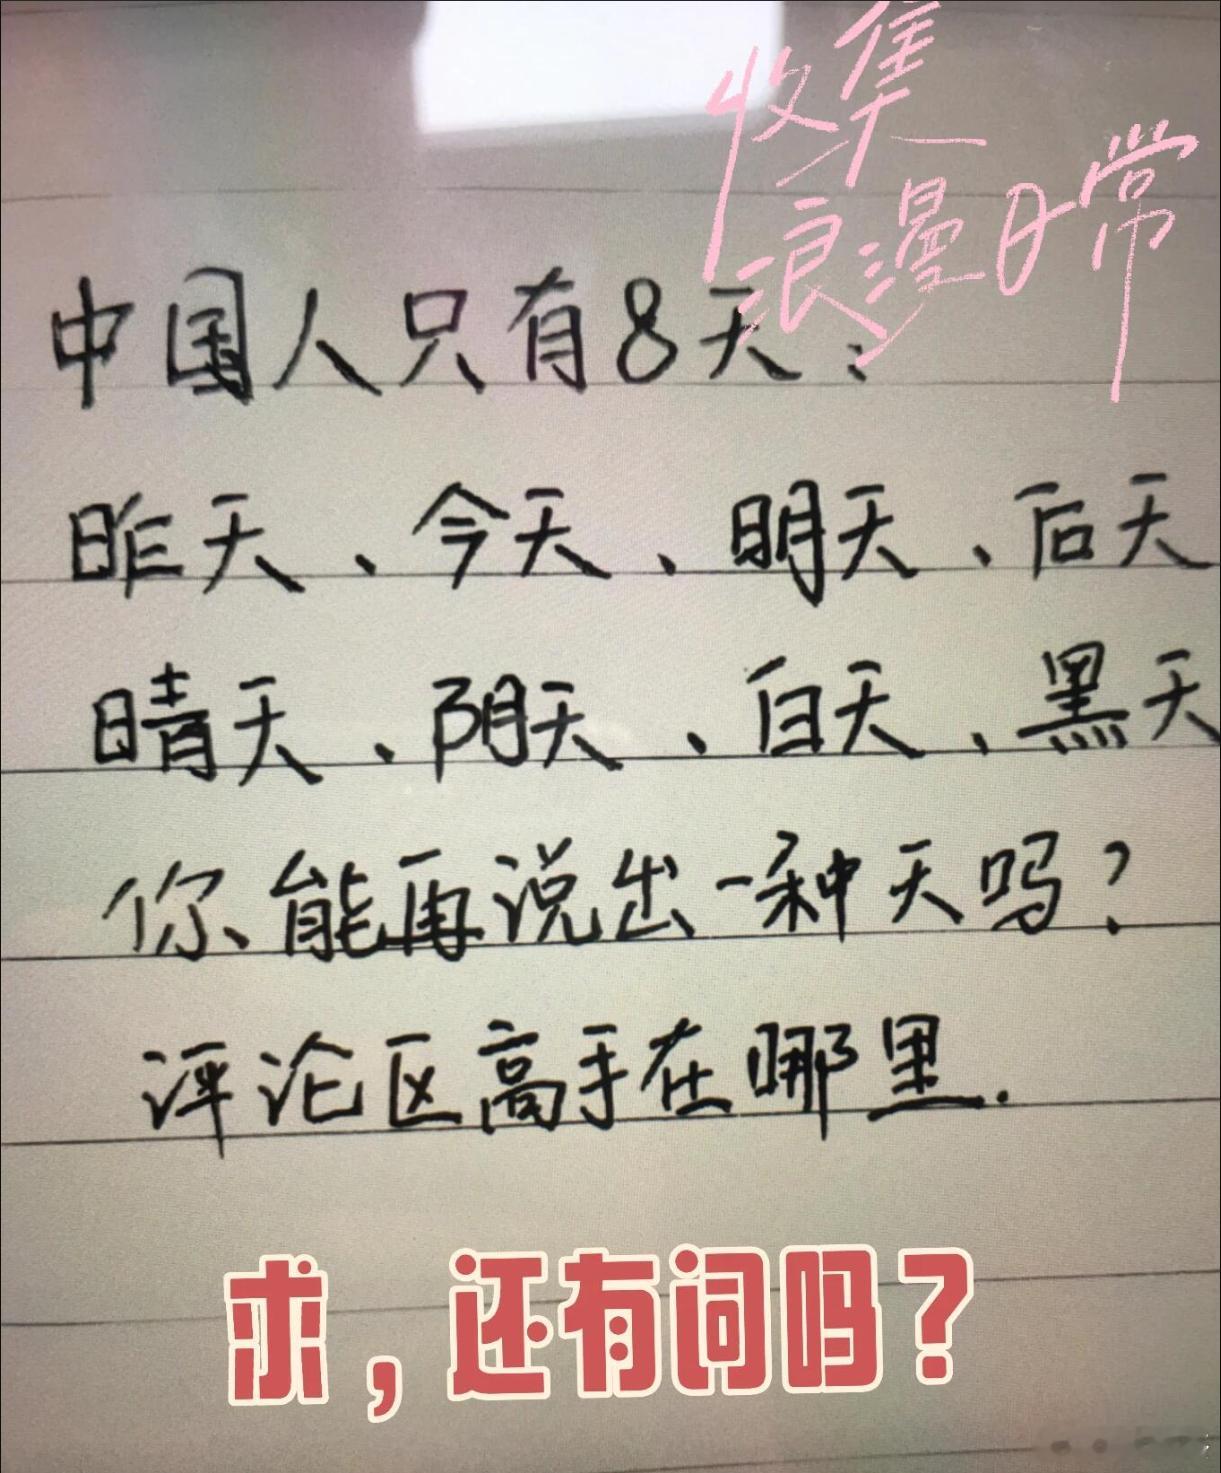 收集
浪漫日常
中国人只有8天:
昨天、今天、明天、后天
晴天、阴天、白天、黑天
你能再说出一种天吗?
评论区高手在哪里.
求,还有词吗?